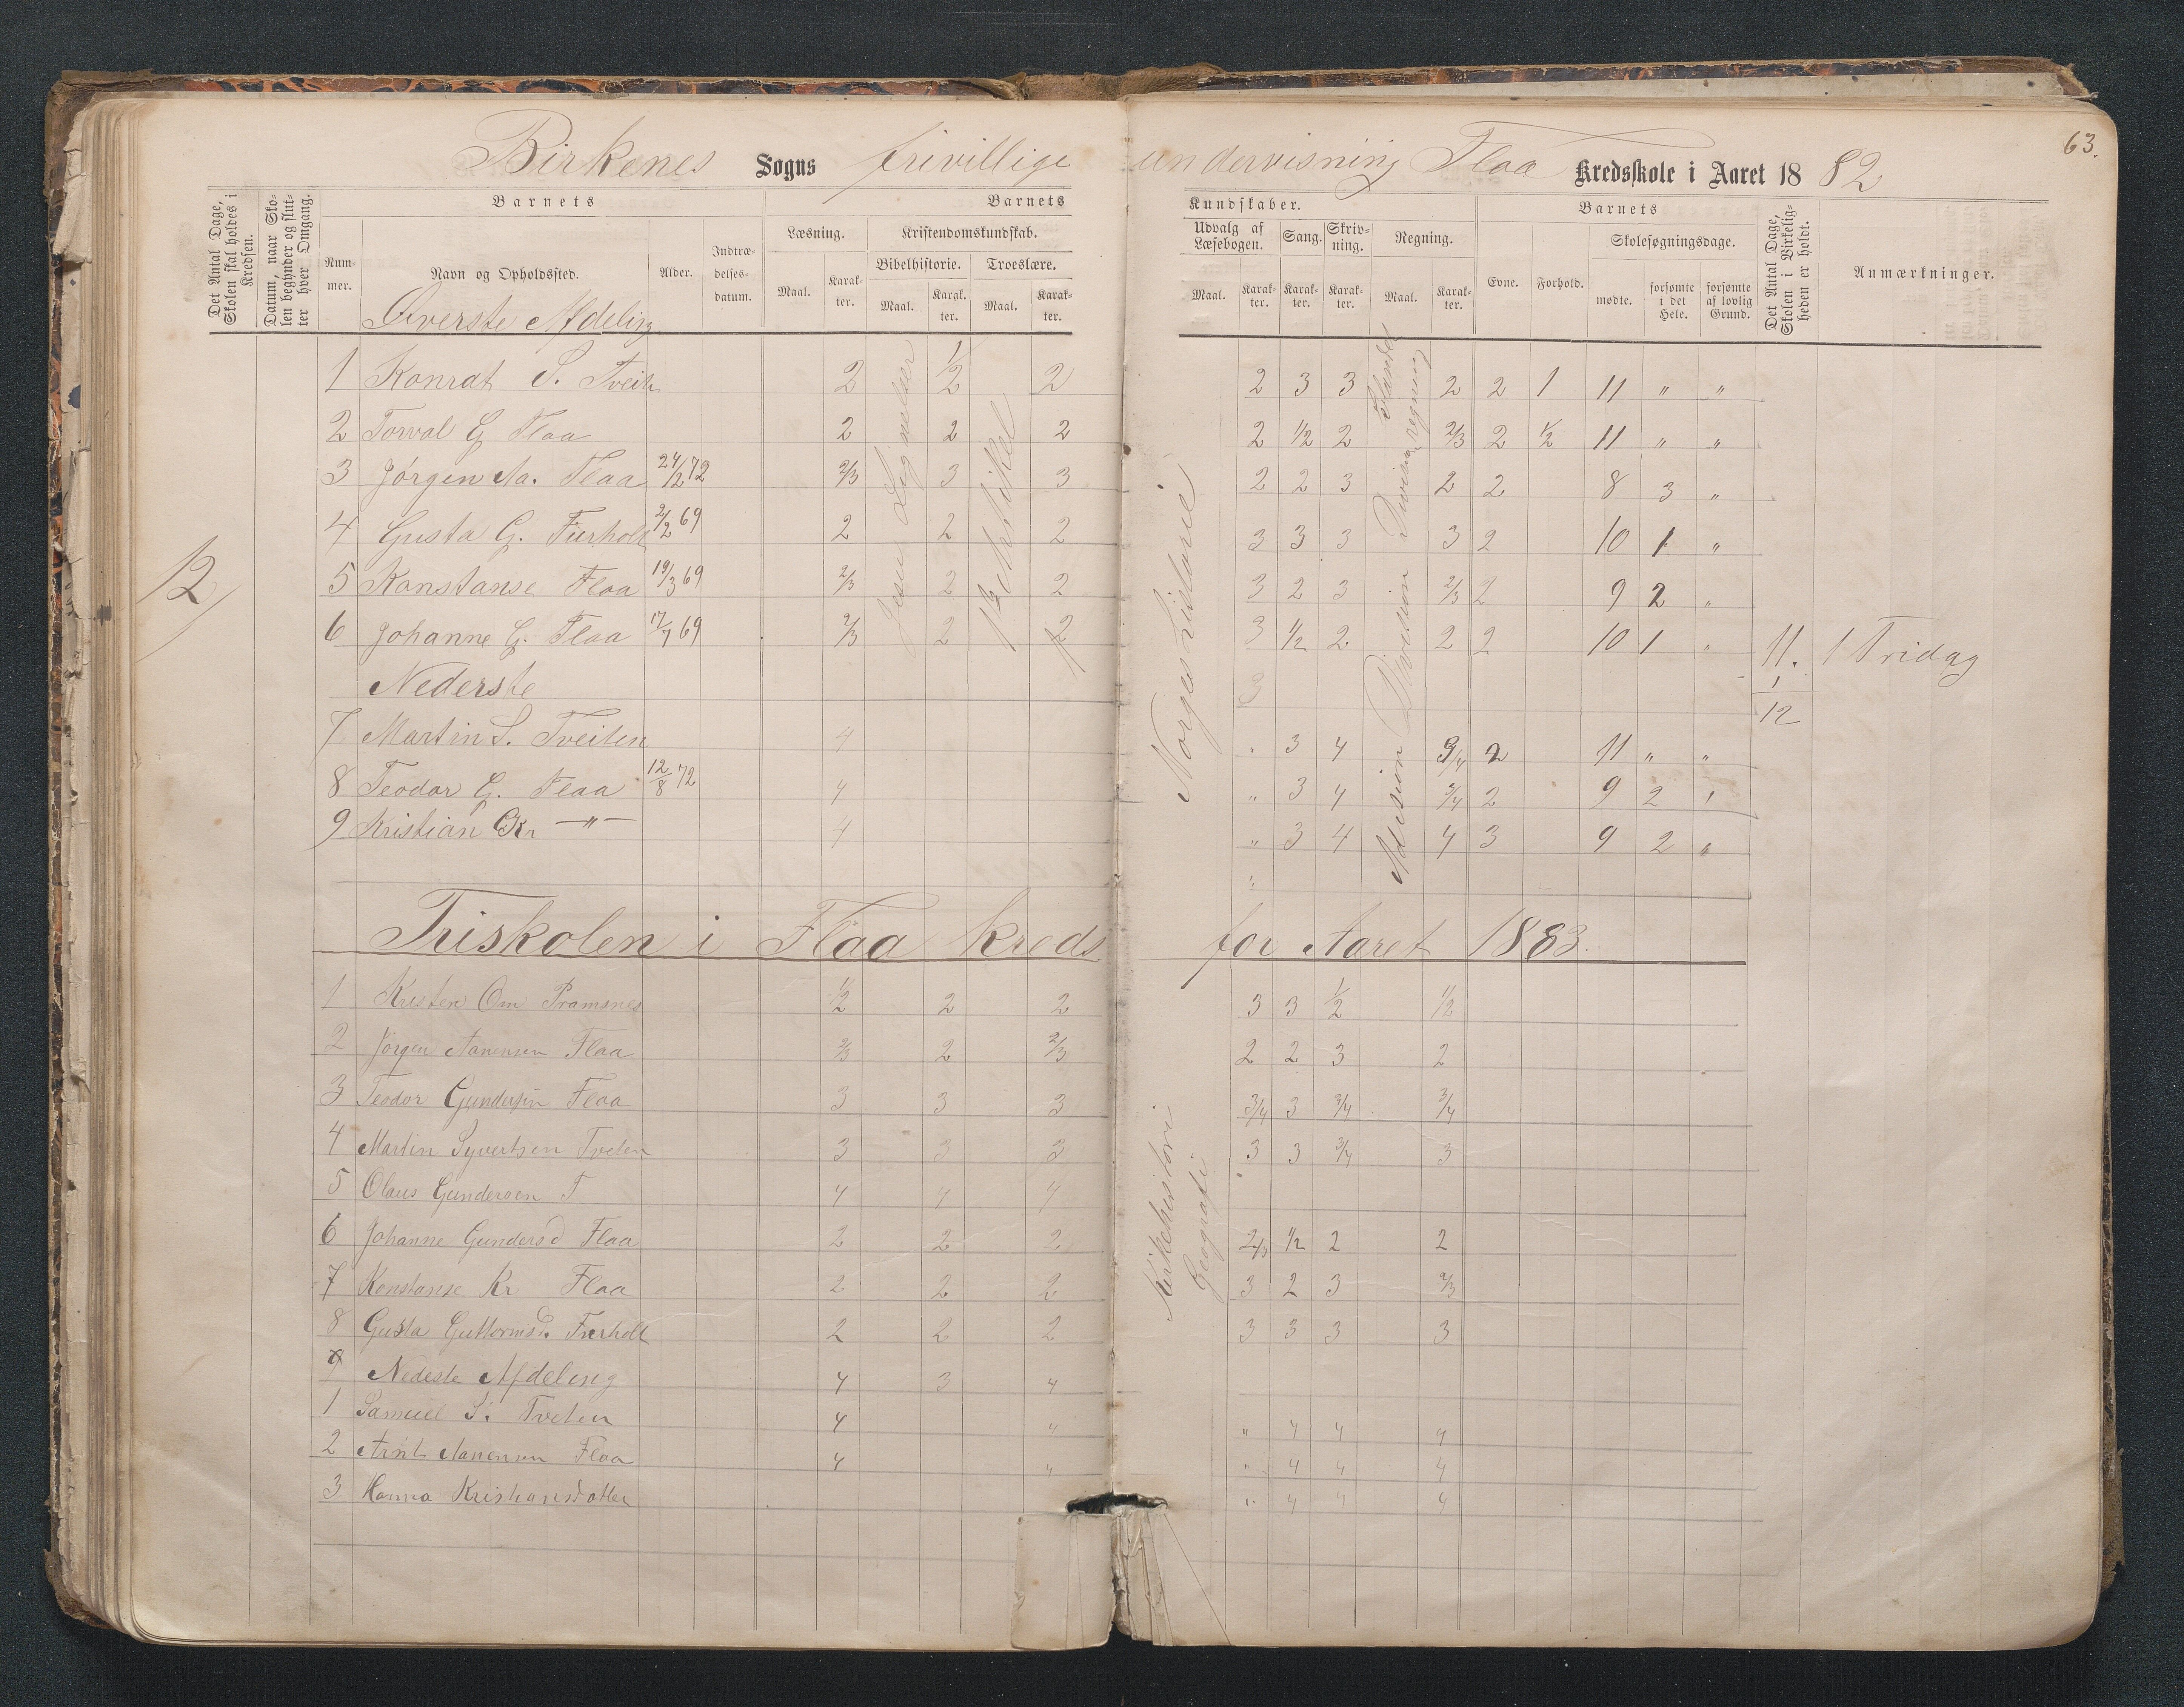 63.
Birkenes Sogns frivillige undervisning Flaa Kredsskole i Aaret 1882
Det Antal Dage, Skolen skal holdes i Kredsen.
Datum, naar Skolen begynder og slutter hver Omgang.
Barnets
Nummer.
Navn og Opholdssted.
Alder.
Indtrædelsesdatum.
Barnets
Kundskaber.
Læsning.
Maal.
Karakter.
Kristendomskundskab.
Bibelhistorie.
Maal.
Karakter.
Troeslære.
Maal.
Karakter.
Udvalg af Læsebogen.
Maal.
Karakter.
Sang.
Karakter.
Skrivning.
Karakter.
Regning.
Maal.
Karakter.
Barnets
Evne.
Forhold.
Skolesøgningsdage.
mødte.
forsømte i det Hele.
forsømte af lovlig Grund.
Det Antal Dage, Skolen i Virkeligheden er holdt.
Anmærkninger.
Øverste Afdeling
12
Jesu Lignelser
Norges historie
1 Konrat S. Tveit 2 1/2 2 2 3 3 2 2 1 11 " "
2 Torval G Flaa 2 2 2 2 1/2 2 2/3 2 1/2 11 " "
3 Jørgen Aa. Flaa 24/2 72 2/3 3 3 2 2 3 2 2 8 3 "
4 Gusta G. Fierholt 2/2 69 2 2 2 3 3 3 3 2 10 1 "
5 Konstanse Flaa 19/3 69 2/3 2 2 3 2 3 2/3 2 9 2 "
6 Johanne G. Flaa 17/7 69 2/3 2 2 3 1/2 2 2 2 10 1 " 11. 1 Fridag
Nederste 3 1
12
7 Martin S. Tveiten 4 " 3 4 3/4 2 11 " "
8 Teodor G. Flaa 12/8 72 4 " 3 4 3/4 2 9 2 "
9 Kristian Kr —"— 4 " 3 4 4 3 9 2 "
Division
Division
Friskolen i Flaa kreds for Aaret 1883.
Kirkehistorie
Geografi
1 Kristen Om Pramsnes 1/2 2 2 3 3 1/2 1/2
2 Jørgen Aanensen Flaa 2/3 2 2/3 2 2 3 2
3 Teodor Gundersen Flaa 3 3 3 3/4 3 3/4 3/4
4 Martin Syvertsen Tveten 3 3 3 3 3 3/4 3
5 Olaus Gundersen F 4 4 4
6 Johanne Gundersd Flaa 2 2 2 2/3 1/2 2 2
7 Konstanse Kr Flaa 2 2 2 3 2 3 2/3
8 Gusta Guttormsd. Fierholt 2 2 2 3 3 3 3
9 Nedeste Afdeling 4 3 4
1 Samuel S. Tveten 4 4 " 4 4 4
2 Arnt Aanensen Flaa 4 4 " 4 4 4
3 Hanna Kristiansdatter " 4 4 4